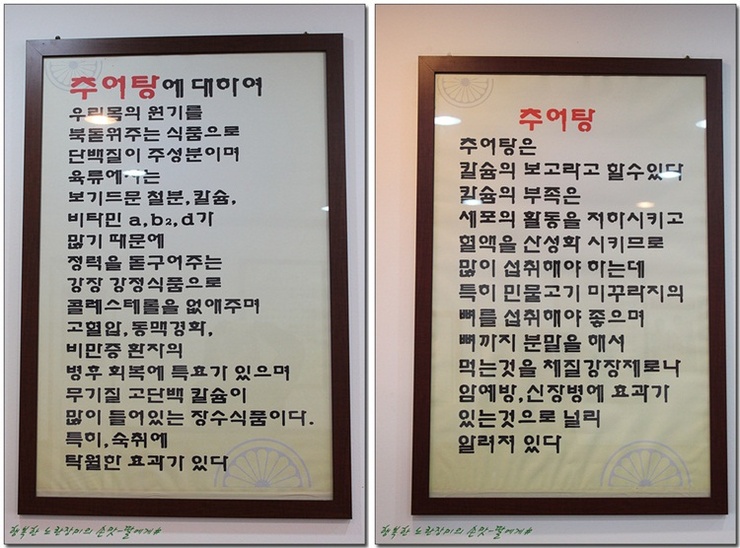 추어탕에 대하여
우리몸의 원기를
북돋워주는 식품으로
단백질이 주성분이며
육류에서는
보기드문 철분,칼슘,
비타민 a,b₂,d가
많기 때문에
정력을 돋구어주는
강장 강정식품으로
콜레스테롤을 없애주며
고혈압,동맥경화,
비만증 환자의
병후 회복에 특효가 있으며
무기질 고단백 칼슘이
많이 들어있는 장수식품이다.
특히,숙취에
탁월한 효과가 있다
행복한 노란장미의 손맛~
추어탕
추어탕은
칼슘의 보고라고 할수있다
칼슘의 부족은
세포의 활동을 저하시키고
혈액을 산성화 시키므로
많이 섭취해야 하는데
특히 민물고기 미꾸라지의
뼈를 섭취해야 좋으며
뼈까지 분말을 해서
먹는것을 체질강장제로나
암예방,신장병에 효과가
있는것으로 널리
알려져 있다
행복한 노란장미의 손맛~